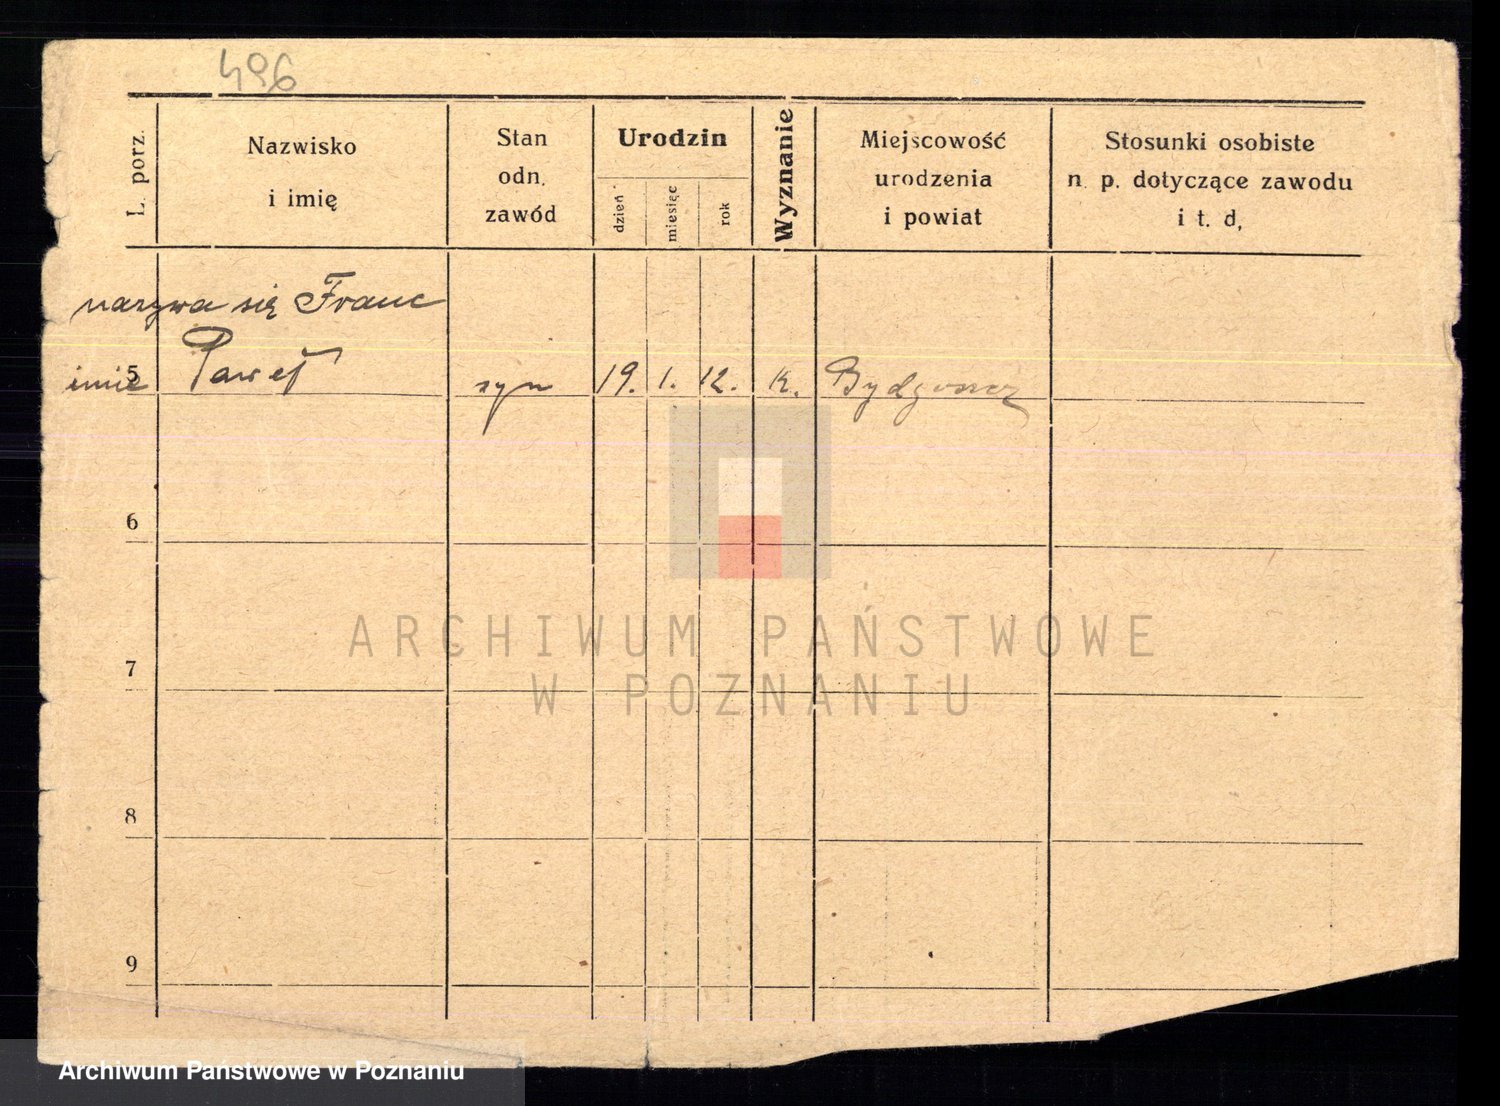 496
L. porz.
Nazwisko
i imię
Stan
odn.
zawód
Urodzin
dzień
miesięc
rok
Wyznanie
Miejscowość
urodzenia
i powiat
Stosunki osobiste
n. p. dotyczące zawodu
i t. d,
nazywa się Franc
imie 5 Paweł syn 19. 1. 12. k. Bydgoszcz
6
7
8
9
ARCHIWUM PAŃSTWOWE
W POZNANIU
Archiwum Państwowe w Poznaniu